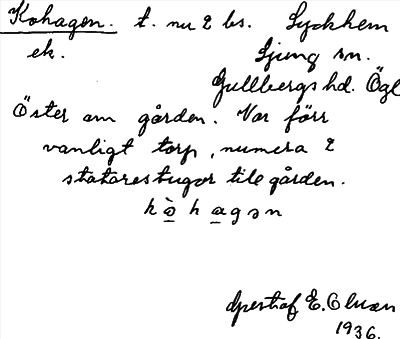 Kohagen. t. nu 2 bs. Lyckhem
ek. Ljung sn.
Gullbergs hd. Ögl
Öster om gården. Var förr
vanligt torp, numera 2
statarestugor till gården.
kò̱ha̱gən
Upert af E. Olman
1936.